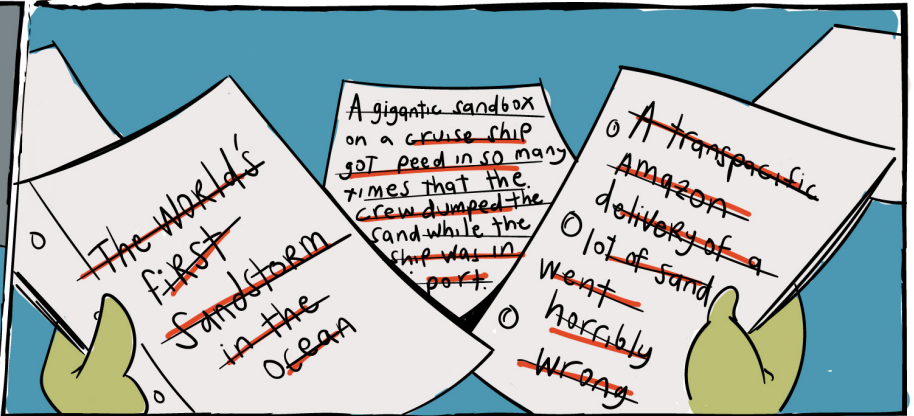 The World's
first
Sandstorm
in the
Ocean
A gigantic sandbox
on a cruise ship
got peed in so many
times that the
crew dumped the
sand while the
ship was in
port.
A transpacific
Amazon
delivery of a
lot of sand
went
horribly
wrong